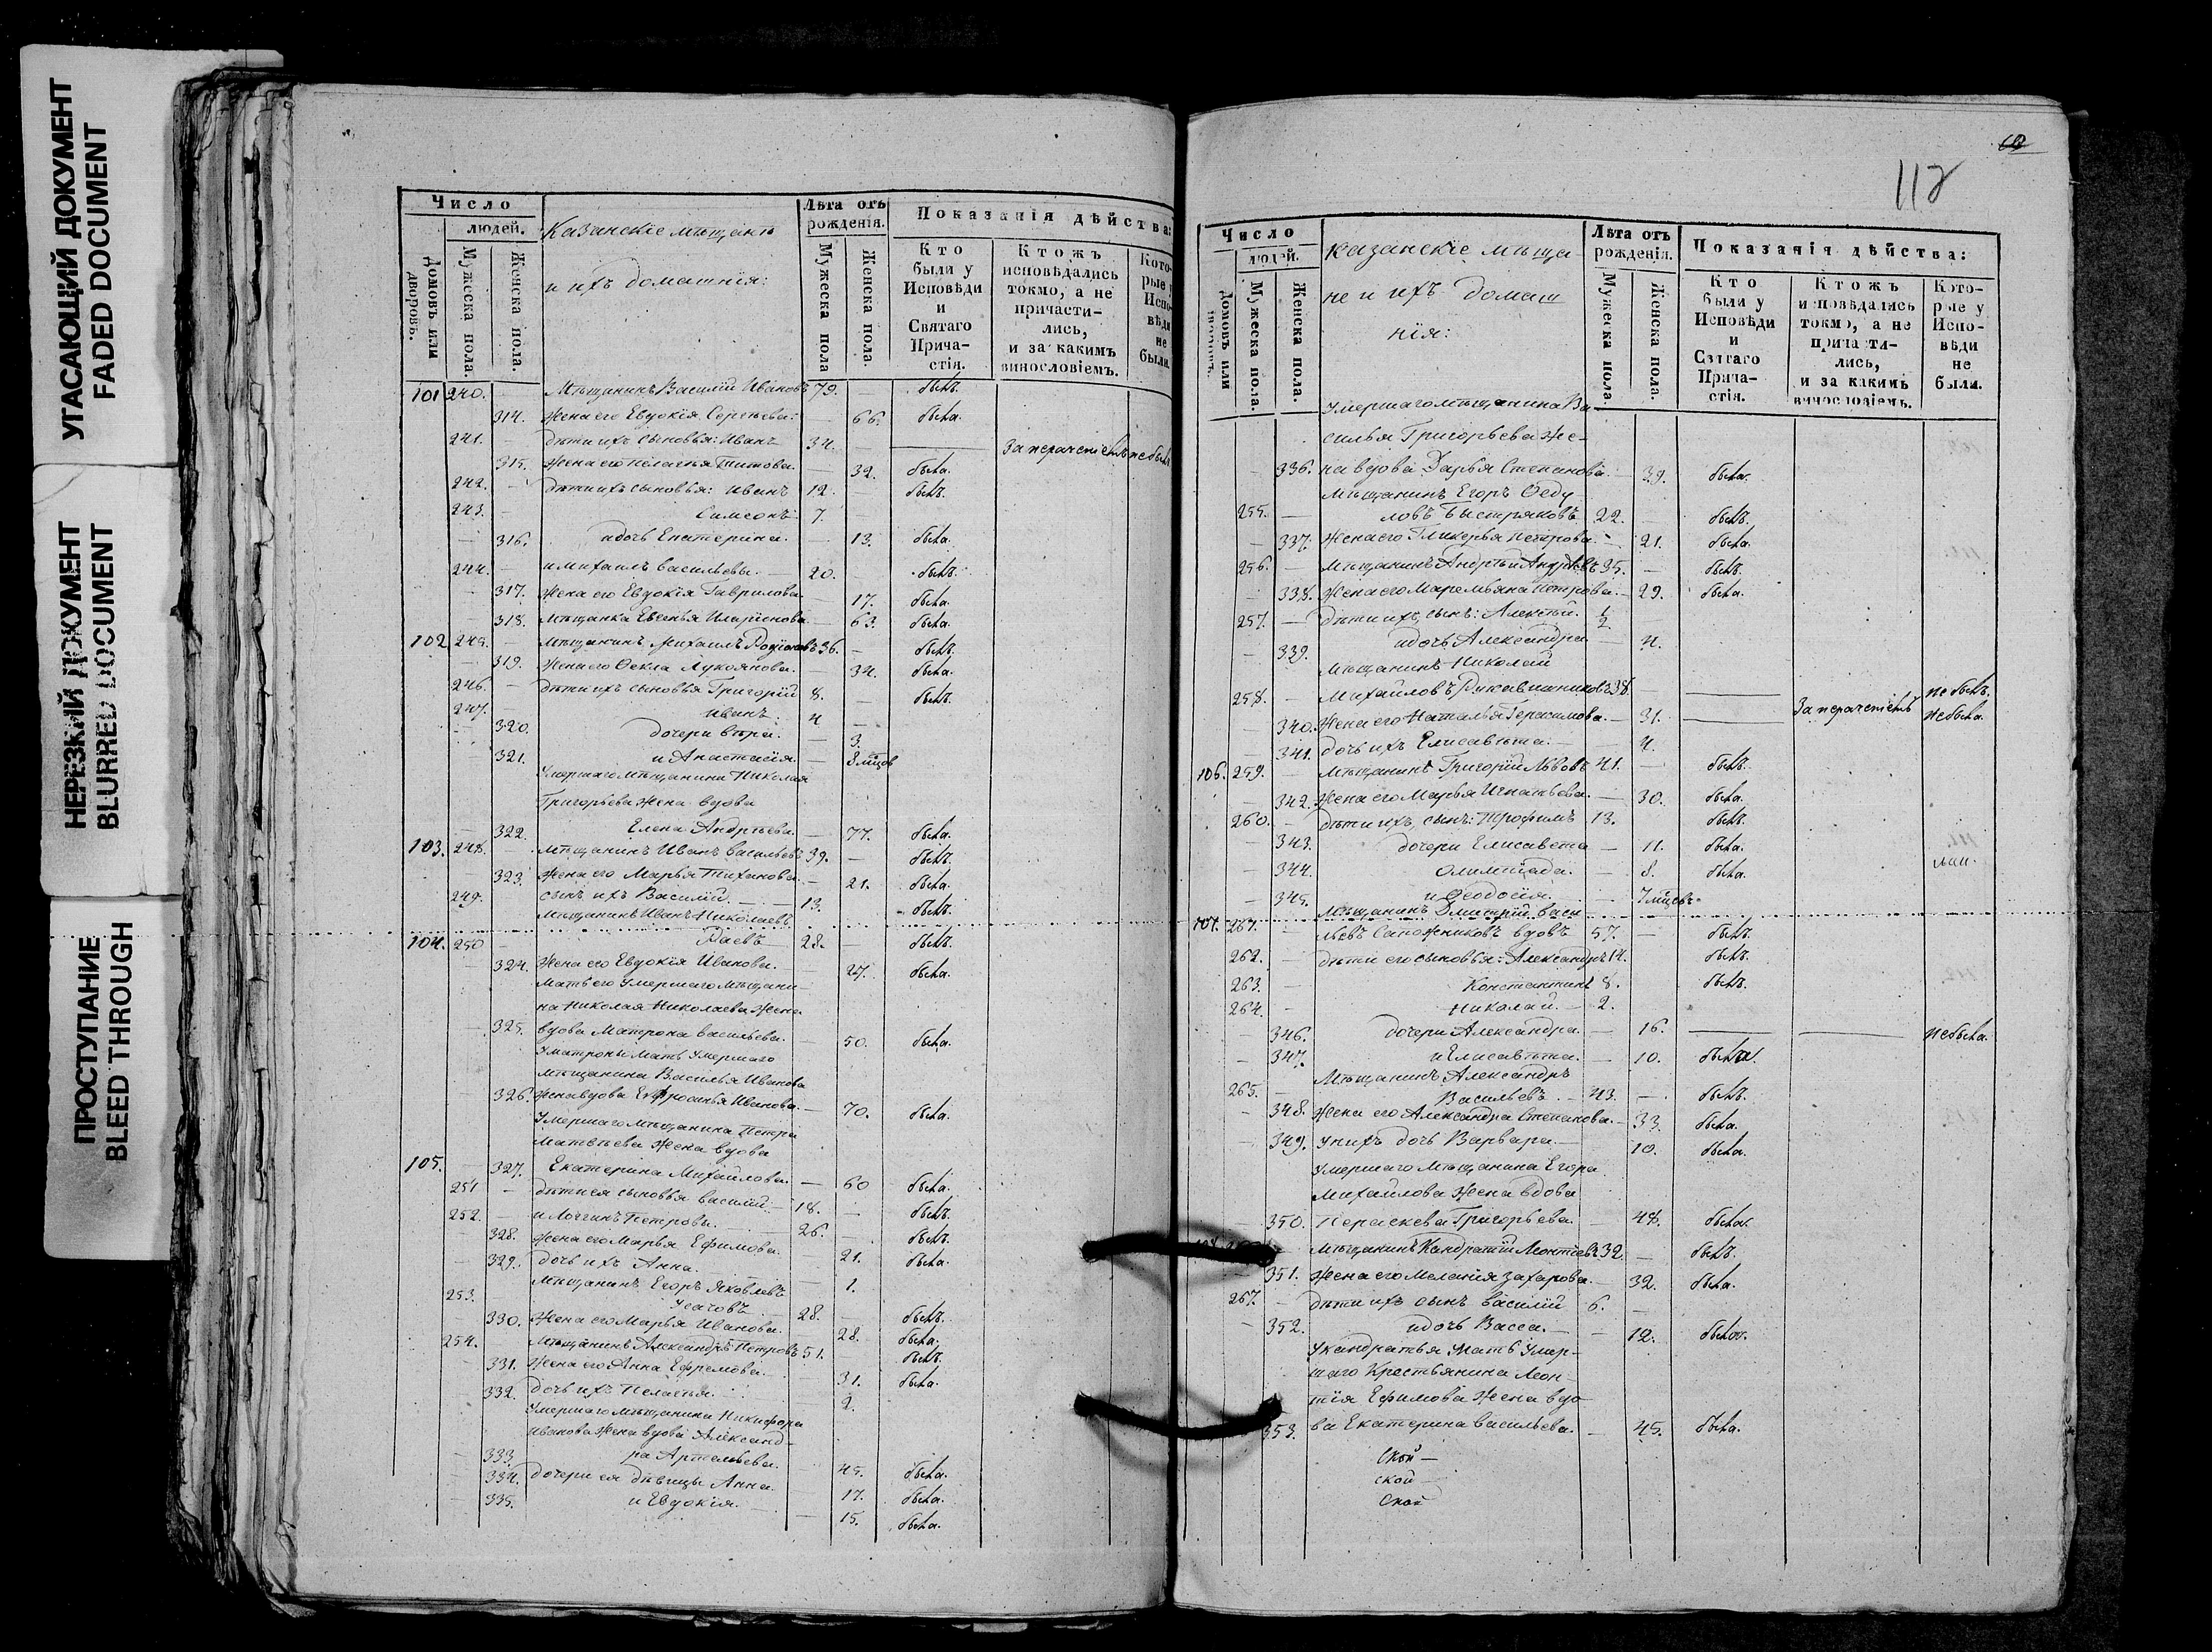 УГАСАЮЩИЙ ДОКУМЕНТ
FADED DOCUMENT
НЕРЕЗКИЙ ДОКУМЕНТ
BLURRED DOCUMENT
ПРОСТУПАНИЕ
BLEED THROUGH
Число
людей.
Домовъ или дворовъ.
Мужеска пола.
Женска пола.
Казанскіе мѣщане
и ихъ домашнія:
Лѣта отъ рожденія.
Мужеска пола
Женска пола.
Показанія дѣйства:
Кто были у Исповѣди и Святаго Причастія.
Ктожъ исповѣдались токмо, а не причастились, и за какимъ винословіемъ.
Которые у Исповѣди не были.
101 240. — Мѣщанинъ Василій Ивановъ 79. — былъ.
314. Жена его Евдокія Сергѣева: — 66. была.
241. — дѣти ихъ сыновья: Иванъ 34. — За нераченіемъ не былъ
315. Жена его Пелагья Титова. — 32. была.
242. — дѣти ихъ сыновья: Иванъ 12. — былъ.
243. — Симеонъ. 7.
— 316. и дочь Екатерина. — 13. была.
244. — и Михаилъ Васильевы. — 20. былъ.
— 317. Жена его Евдокія Гаврилова — 17. была.
— 318. Мѣщанка Евгенья Иларіонова — 63. была.
102 245. — Мѣщанинъ Михаилъ Родіоновъ 36. — былъ.
— 319. Жена его Ѳекла Лукоянова. 34. была.
246. — дѣти ихъ сыновья Григорій 8. — былъ.
247. Иванъ. 4 —
— 320. дочери Вѣра. — 3.
321. и Анастасія. — 3 мѣсцов
Умершаго мѣщанина Николая
Григорьева жена вдова
— 322. Елена Андрѣева. — 77. была.
103. 248. — Мѣщанинъ Иванъ Васильевъ 39. — былъ.
— 323. Жена его Марья Тиханова. — 21. была.
249. сынъ ихъ Василій. — 13. былъ.
Мѣщанинъ Иванъ Николаевъ
104. 250 — Раевъ 28. — былъ.
— 324. Жена его Евдокія Иванова. 27. была.
Мать его умершаго мѣщани-
на Николая Николаева жена
— 325. вдова Матрона Васильева. 50. была.
У Матроны мать умершаго
мѣщанина Василья Иванова
— 326. жена вдова Евфросинья Иванова. — 70. была.
Умершаго мѣщанина Петра
Матвѣева жена вдова
105. — 327. Екатерина Михайлова. — 60 была.
251 — дѣти ея сыновья Василій. — 18. — былъ.
252. — и Логгинъ Петровы. 26. — былъ.
328. Жена его Марья Ефимова. — 21. была.
329. дочь ихъ Анна. — 1.
Мѣщанинъ Егоръ Яковлевъ
253. Усачовъ 28. — былъ.
— 330. Жена его Марья Иванова. 28. была.
254. — Мѣщанинъ Александръ Петровъ 51. былъ.
331. Жена его Анна Ефремова. — 31. была.
332. дочь ихъ Пелагья. 2.
Умершаго мѣщанина Никифора
Иванова жена вдова Александ-
333. ра Артемьева. 45. была.
334. дочери ея дѣвицы Анна. — 17. была.
335. и Евдокія. — 15. была.
112
Число
людей.
Домовъ или дворовъ.
Мужеска пола.
Женска пола.
Казанскіе мѣща-
не и ихъ домаш
нія:
Лѣта отъ рожденія.
Мужеска пола.
Женска пола.
Показанія дѣйства:
Кто были у Исповѣди и Святаго Причастія.
Ктожъ исповѣдались токмо, а не причастились, и за какимъ винословіемъ.
Которые у Исповѣди не были.
Умершаго мѣщанина Ва-
силья Григорьева же-
— 336. на вдова Дарья Степанова. 39. была.
Мѣщанинъ Егоръ Ѳеду
255. — ловъ Быстряковъ 22. — былъ.
— 337. Жена его Гликерья Петрова. — 21. была.
256. — Мѣщанинъ Андрѣй Андрѣевъ 35. — былъ.
338. Жена его Маремьяна Петрова. — 29. была.
257. — дѣти ихъ, сынъ: Алексѣй. 1/2
— 339. и дочь Александра — 4.
Мѣщанинъ Николай
258. — Михайловъ Рукавишниковъ 38. — не былъ.
— 340. Жена его Наталья Герасимова. — 31. — За нераченіемъ не была.
— 341. дочь ихъ Елисавета. — 4.
106. 259. — Мѣщанинъ Григорій Львовъ 41. — былъ.
— 342. Жена его Марья Игнатьева. — 30. была.
260. — дѣти ихъ, сынъ: Трофимъ 13. былъ.
— 343. дочери Елисавета — 11. была.
— 344. Олимпіада. — 8. была.
— 345. и Ѳеодосія. 7 мѣсцевъ
Мѣщанинъ Дмитрій Васи
107. 261. — льевъ Сапожниковъ вдовъ 57. — былъ.
262. — дѣти его сыновья: Александръ 14. былъ.
263. — Константинъ 8. былъ.
264. — Николай. — 2.
346. дочери Александра. — 16. — — не была.
— 347. и Елисавета. — 10. была.
Мѣщанинъ Александръ
265. — Васильевъ. — 43. — былъ.
— 348. Жена его Александра Степанова. — 33. была.
— 349. у нихъ дочь Варвара. — 10. была.
Умершаго мѣщанина Егора
Михайлова жена вдова
— 350. Параскева Григорьева. — 48. была.
— Мѣщанинъ Кандратій Леонтіевъ 32. — былъ.
351. Жена его Меланія Захарова. — 32. была.
267. — дѣти ихъ сынъ Василій 6. —
— 352. и дочь Васса. — 12. была.
У Кандратья мать умер-
шаго крестьянина Леон-
тія Ефимова жена вдо
353. ва Екатерина Васильева. — 45. была.
Ской —
ской
Ской